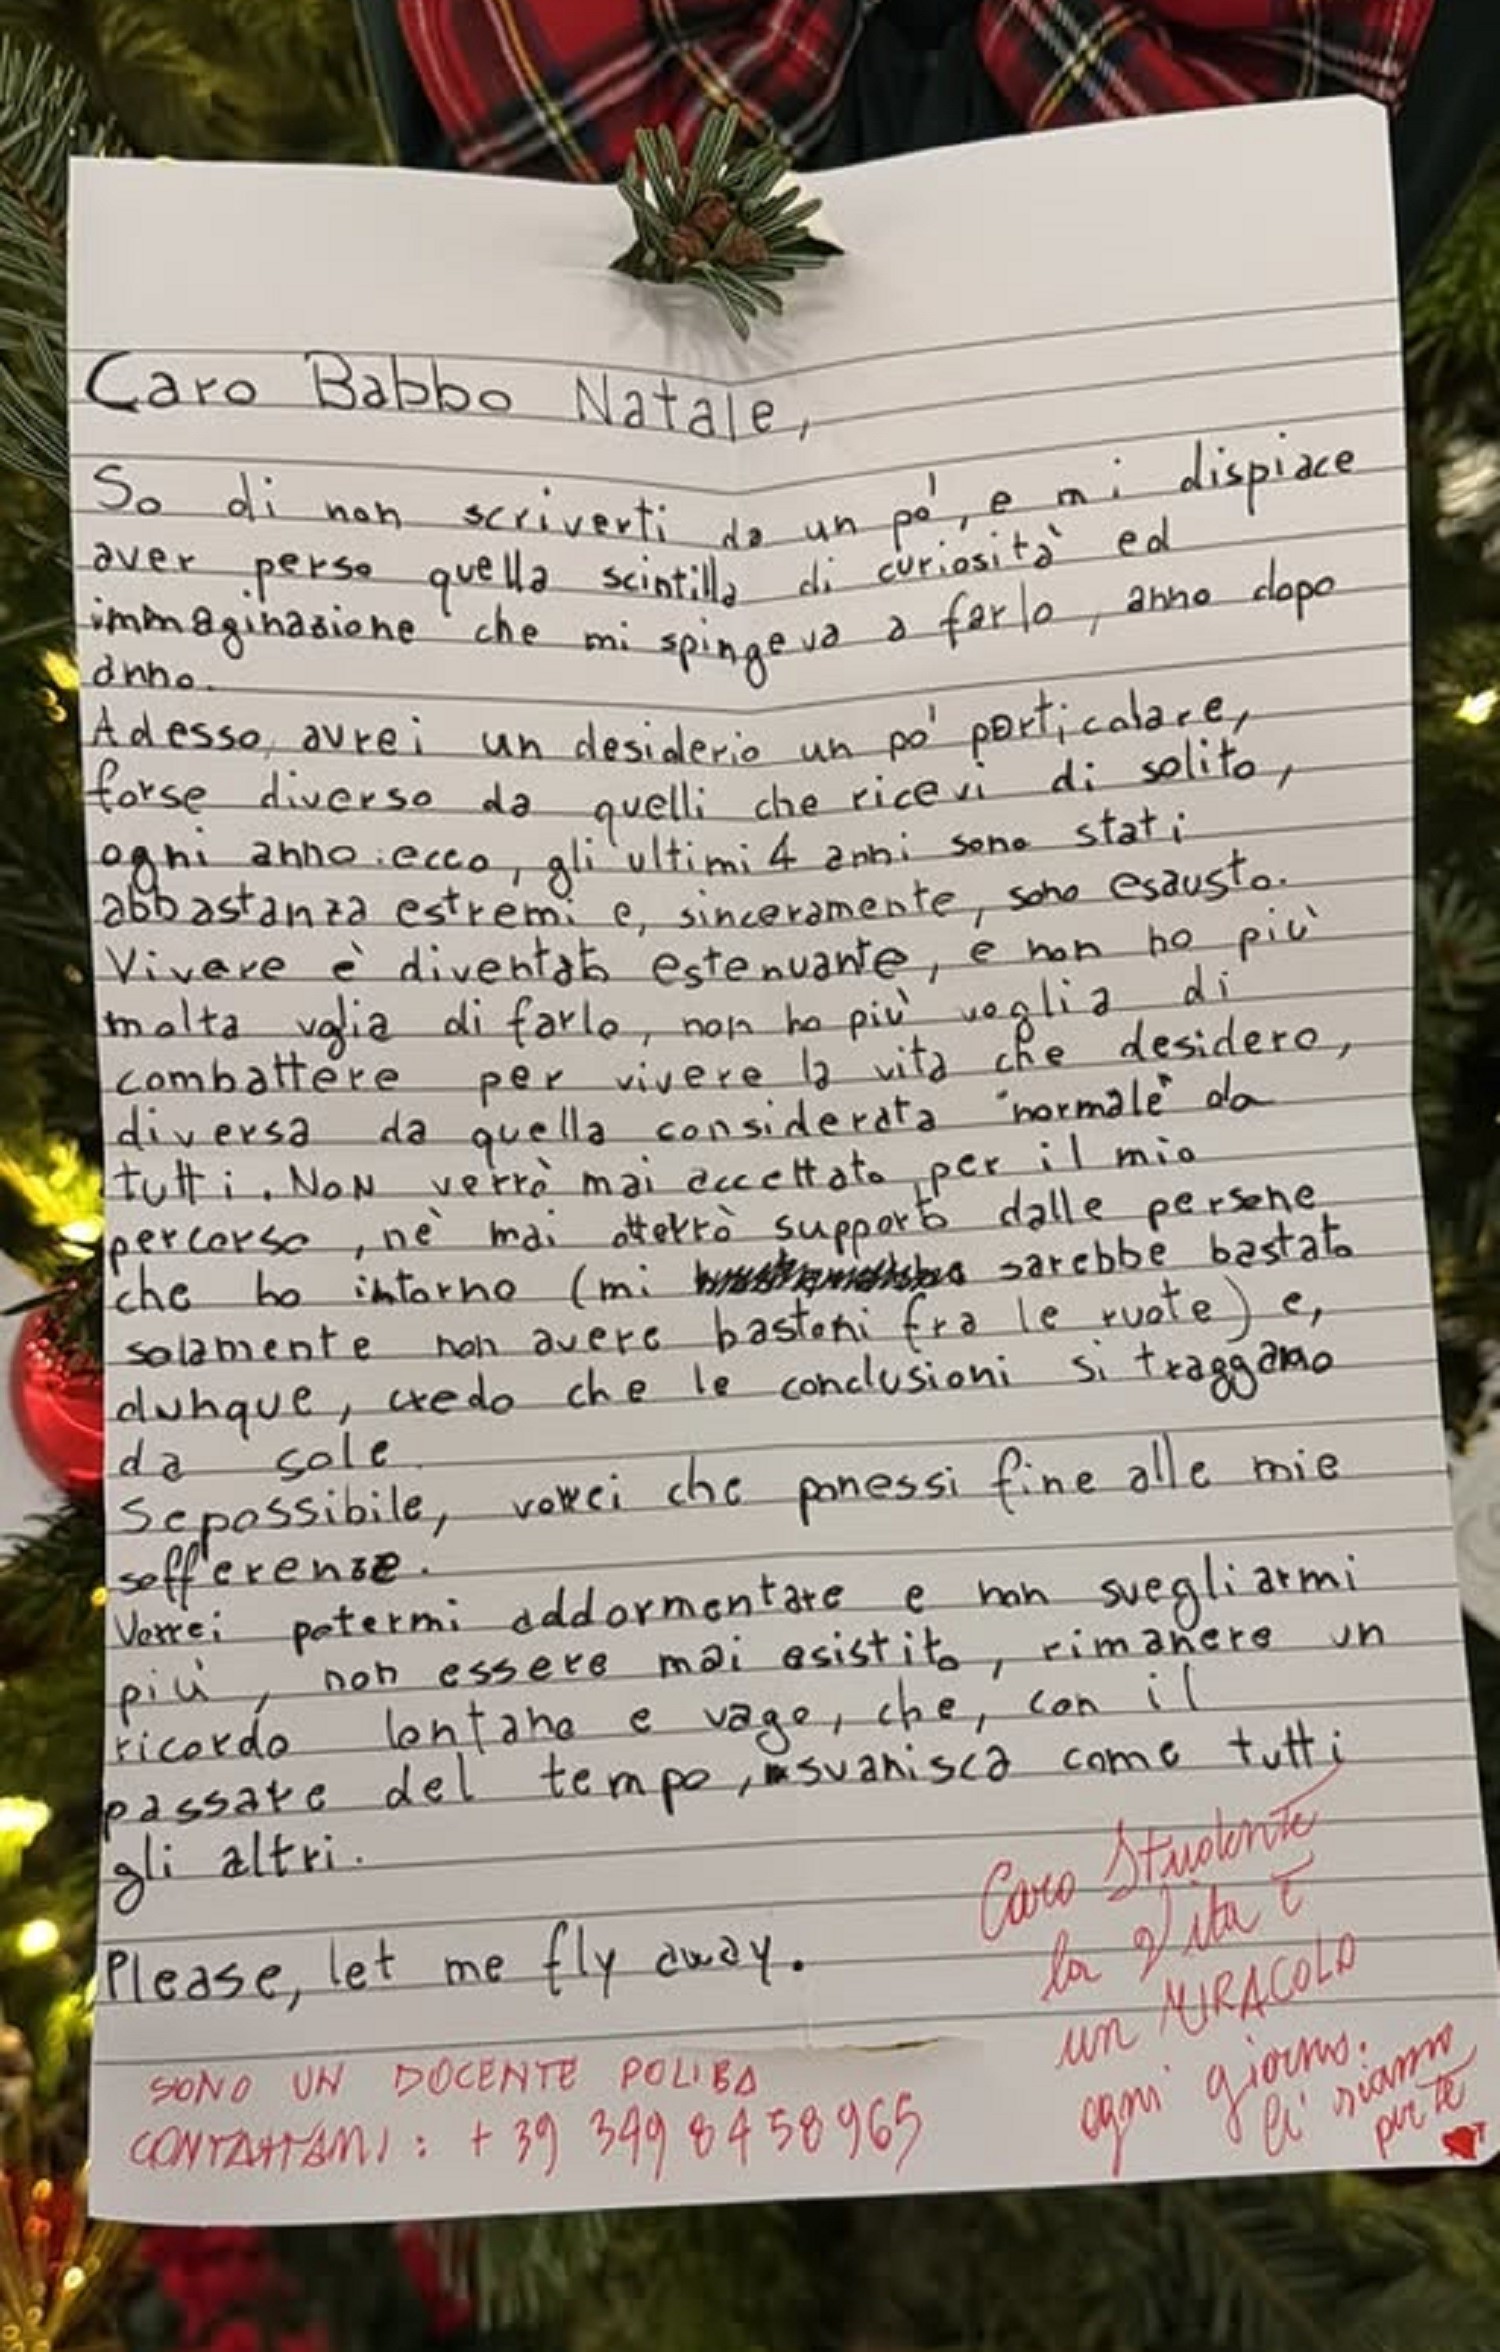 Caro Babbo Natale,
So di non scriverti da un po', e mi dispiace
aver perso quella scintilla di curiosità ed
immaginazione che mi spingeva a farlo, anno dopo
anno.
Adesso avrei un desiderio un po' particolare,
forse diverso da quelli che ricevi di solito,
ogni anno: ecco, gli ultimi 4 anni sono stati
abbastanza estremi e, sinceramente, sono esausto.
Vivere è diventato estenuante, e non ho più
molta voglia di farlo, non ho più voglia di
combattere per vivere la vita che desidero,
diversa da quella considerata "normale" da
tutti. NON verrò mai accettato per il mio
percorso, nè mai otterrò supporto dalle persone
che ho intorno (mi sarebbe bastato
solamente non avere bastoni fra le ruote) e,
dunque, credo che le conclusioni si traggano
da sole.
Se possibile, vorrei che ponessi fine alle mie
sofferenze.
Vorrei potermi addormentare e non svegliarmi
più, non essere mai esistito, rimanere un
ricordo lontano e vago, che, con il
passare del tempo, svanisca come tutti
gli altri.
Please, let me fly away.
Caro Studente
la Vita è
un MIRACOLO
ogni giorno.
Ci siamo
per te
SONO UN DOCENTE POLIBA
CONTATTAMI: +39 349 8458965